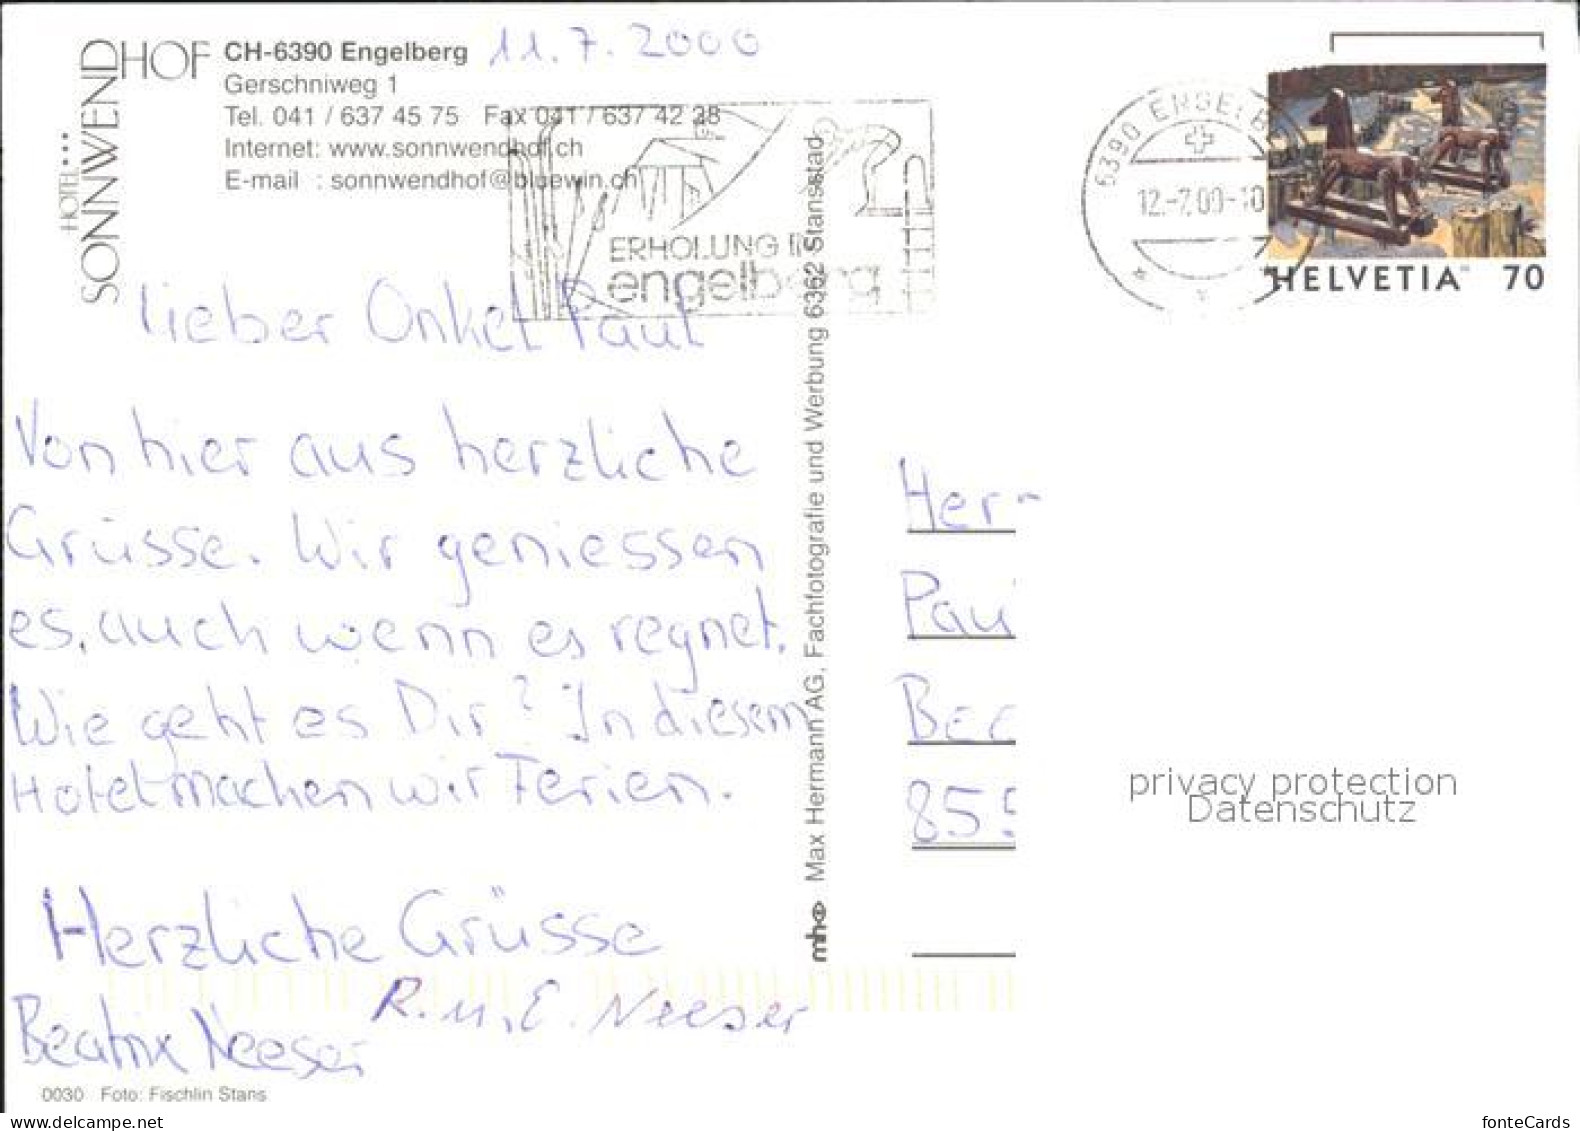 HOTEL***
SONNWENDHOF
CH-6390 Engelberg
11.7.2000
Gerschniweg 1
Tel. 041 / 637 45 75 Fax 041 / 637 42 38
Internet: www.sonnwendhof.ch
E-mail : sonnwendhof@bluewin.ch
ERHOLUNG IN
engelberg
6390 ENGELBE
12.-7.00-10
HELVETIA 70
lieber Onkel Paul
Von hier aus herzliche
Grüsse. Wir geniessen
es, auch wenn es regnet.
Wie geht es Dir? In diesem
Hotel machen wir Ferien.
Herzliche Grüsse
R. u. E. Neeser
Beatrix Neeser
0030 Foto: Fischlin Stans
mh Max Hermann AG, Fachfotografie und Werbung 6362 Stansstad
Herr
Pau
Bec
855
privacy protection
Datenschutz
www.delcampe.net
fonteCards